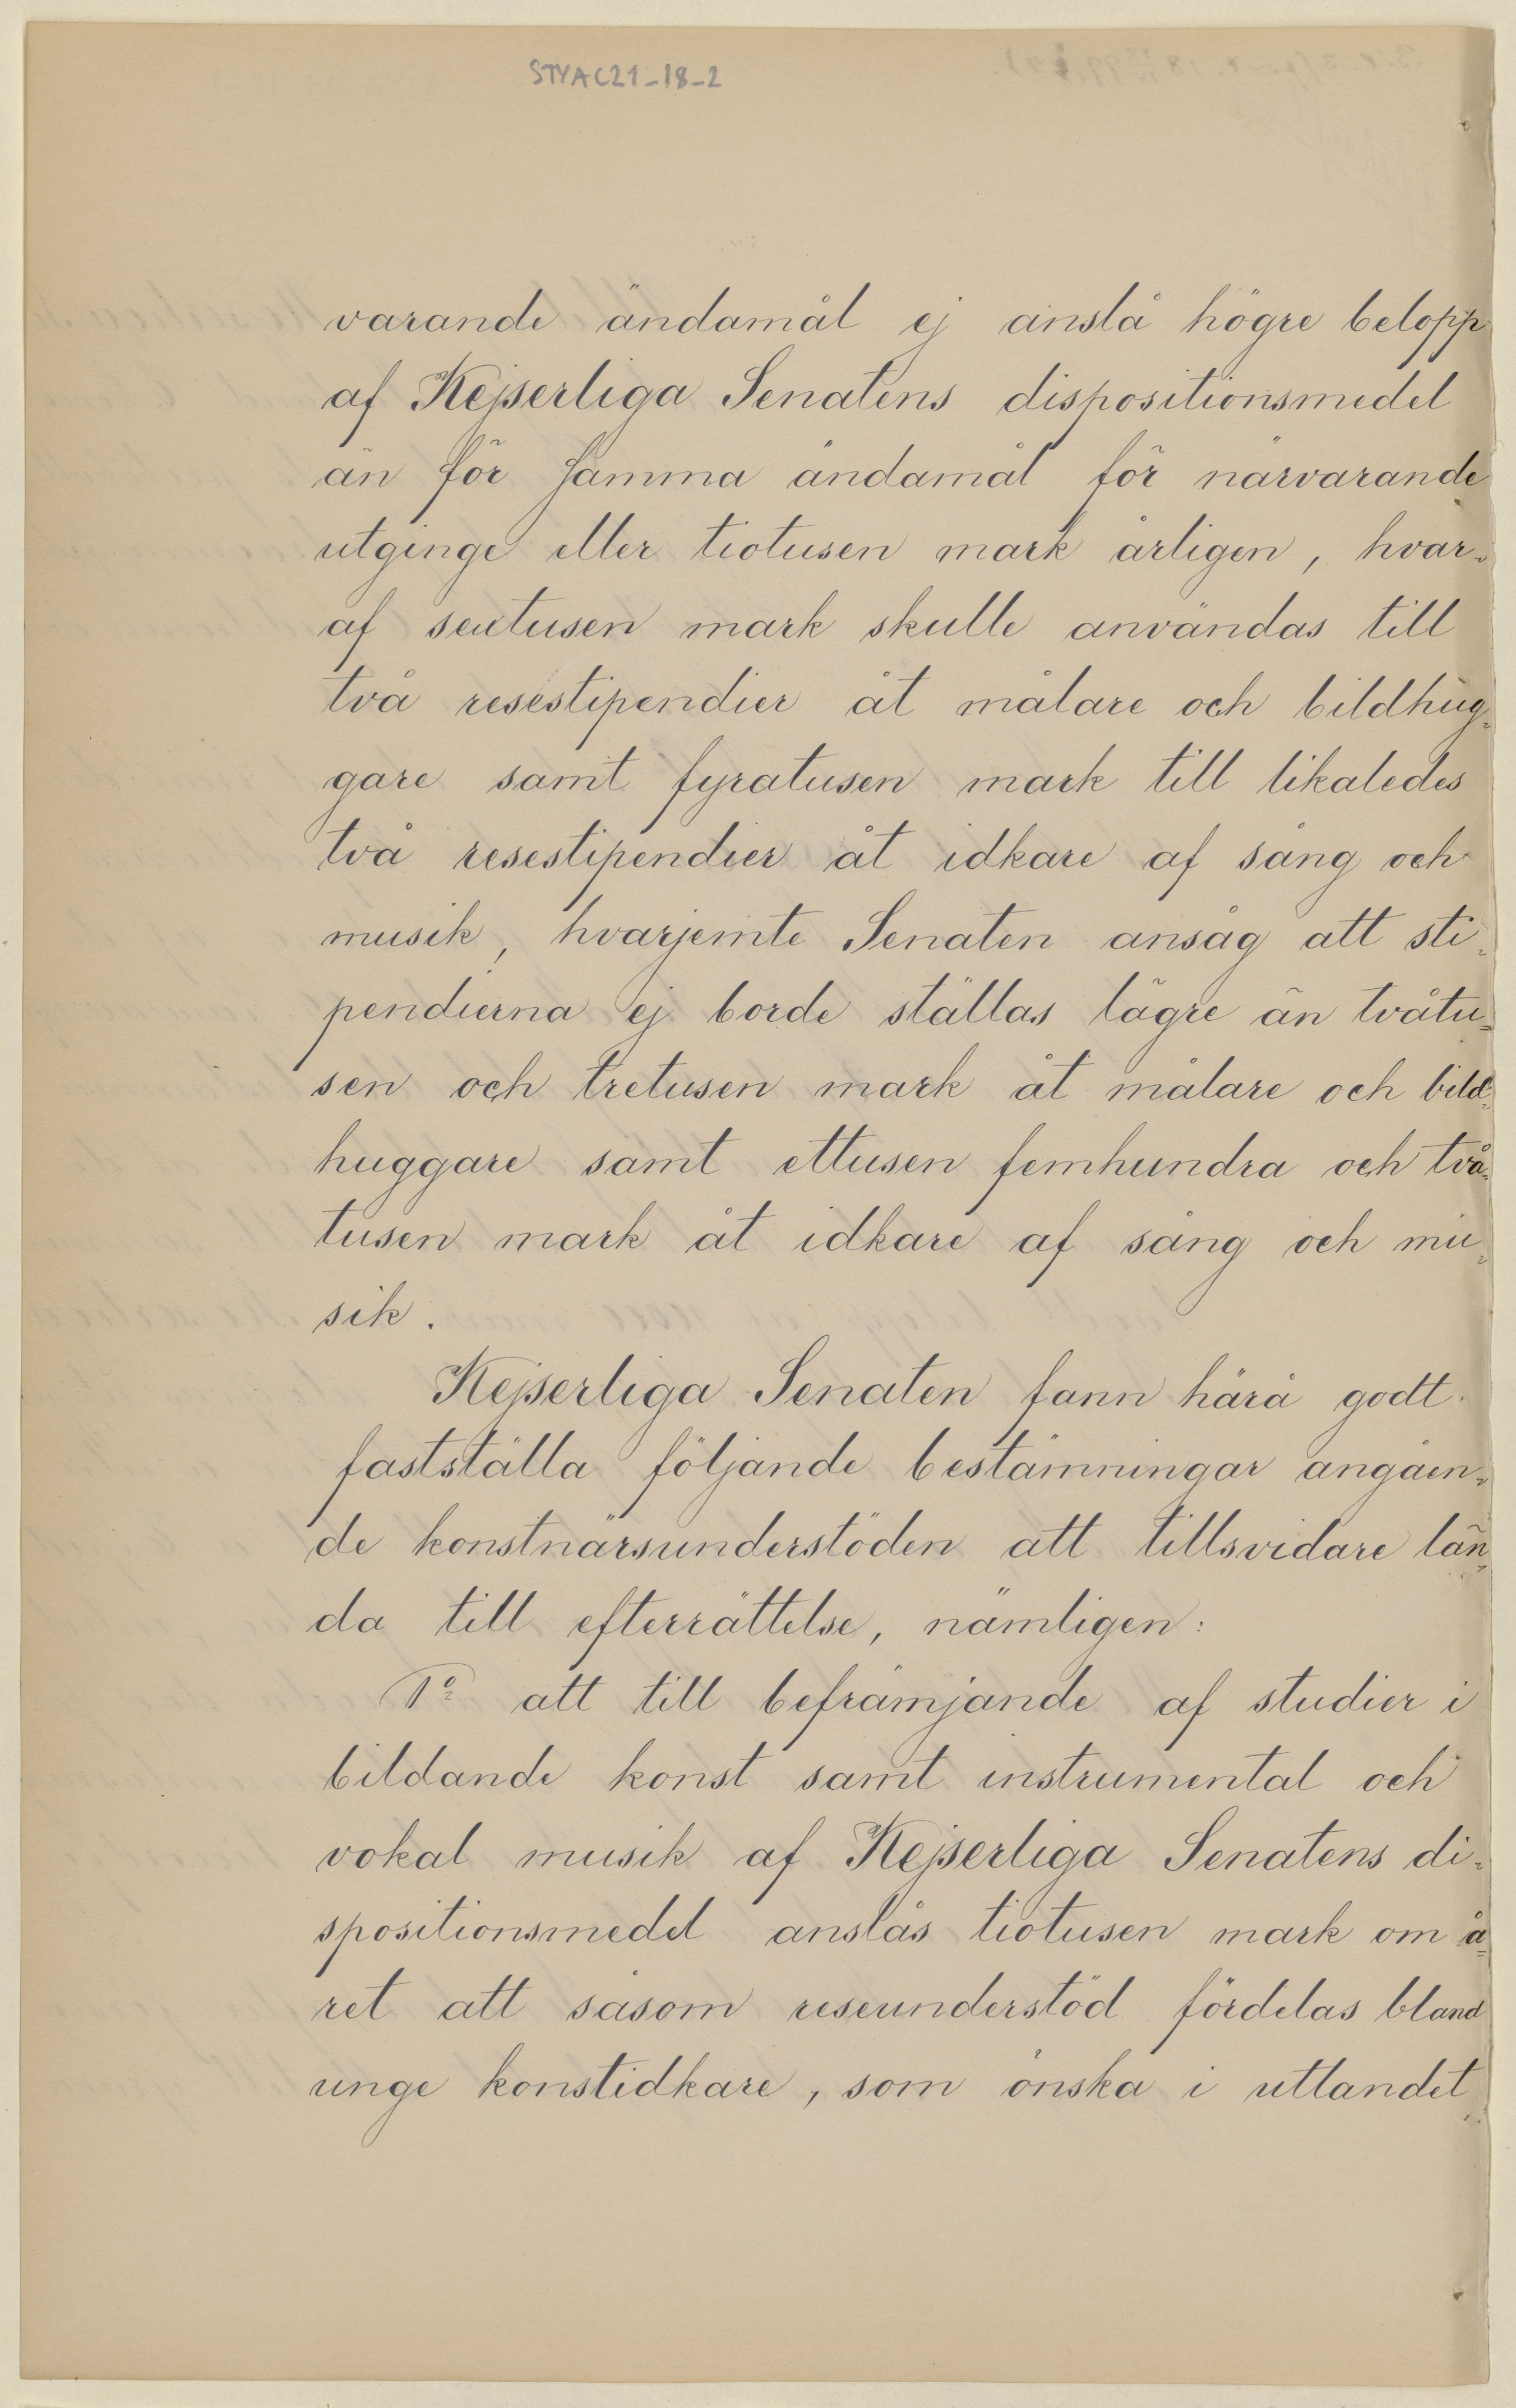 STYAC21-18-2
varande ändamål ej anslå högre belopp
af Kejserliga Senatens dispositionsmedel
än för samma ändamål för närvarande
utginge eller tiotusen mark årligen, hvar-
af sextusen mark skulle användas till
två resestipendier åt målare och bildhug-
gare samt fyratusen mark till likaledes
två resestipendier åt idkare af sång och
musik, hvarjemte Senaten ansåg att sti-
pendierna ej borde ställas lägre än tvåtu-
sen och tretusen mark åt målare och bild-
huggare samt ettusen femhundra och två-
tusen mark åt idkare af sång och mu-
sik.
Kejserliga Senaten fann härå godt
fastställa följande bestämningar angåen-
de konstnärsunderstöden att tillsvidare län-
da till efterrättelse, nämligen:
1º att till befrämjande af studier i
bildande konst samt instrumental och
vokal musik af Kejserliga Senatens di-
spositionsmedel anslås tiotusen mark om å-
ret att såsom reseunderstöd fördelas bland
unge konstidkare, som önska i utlandet